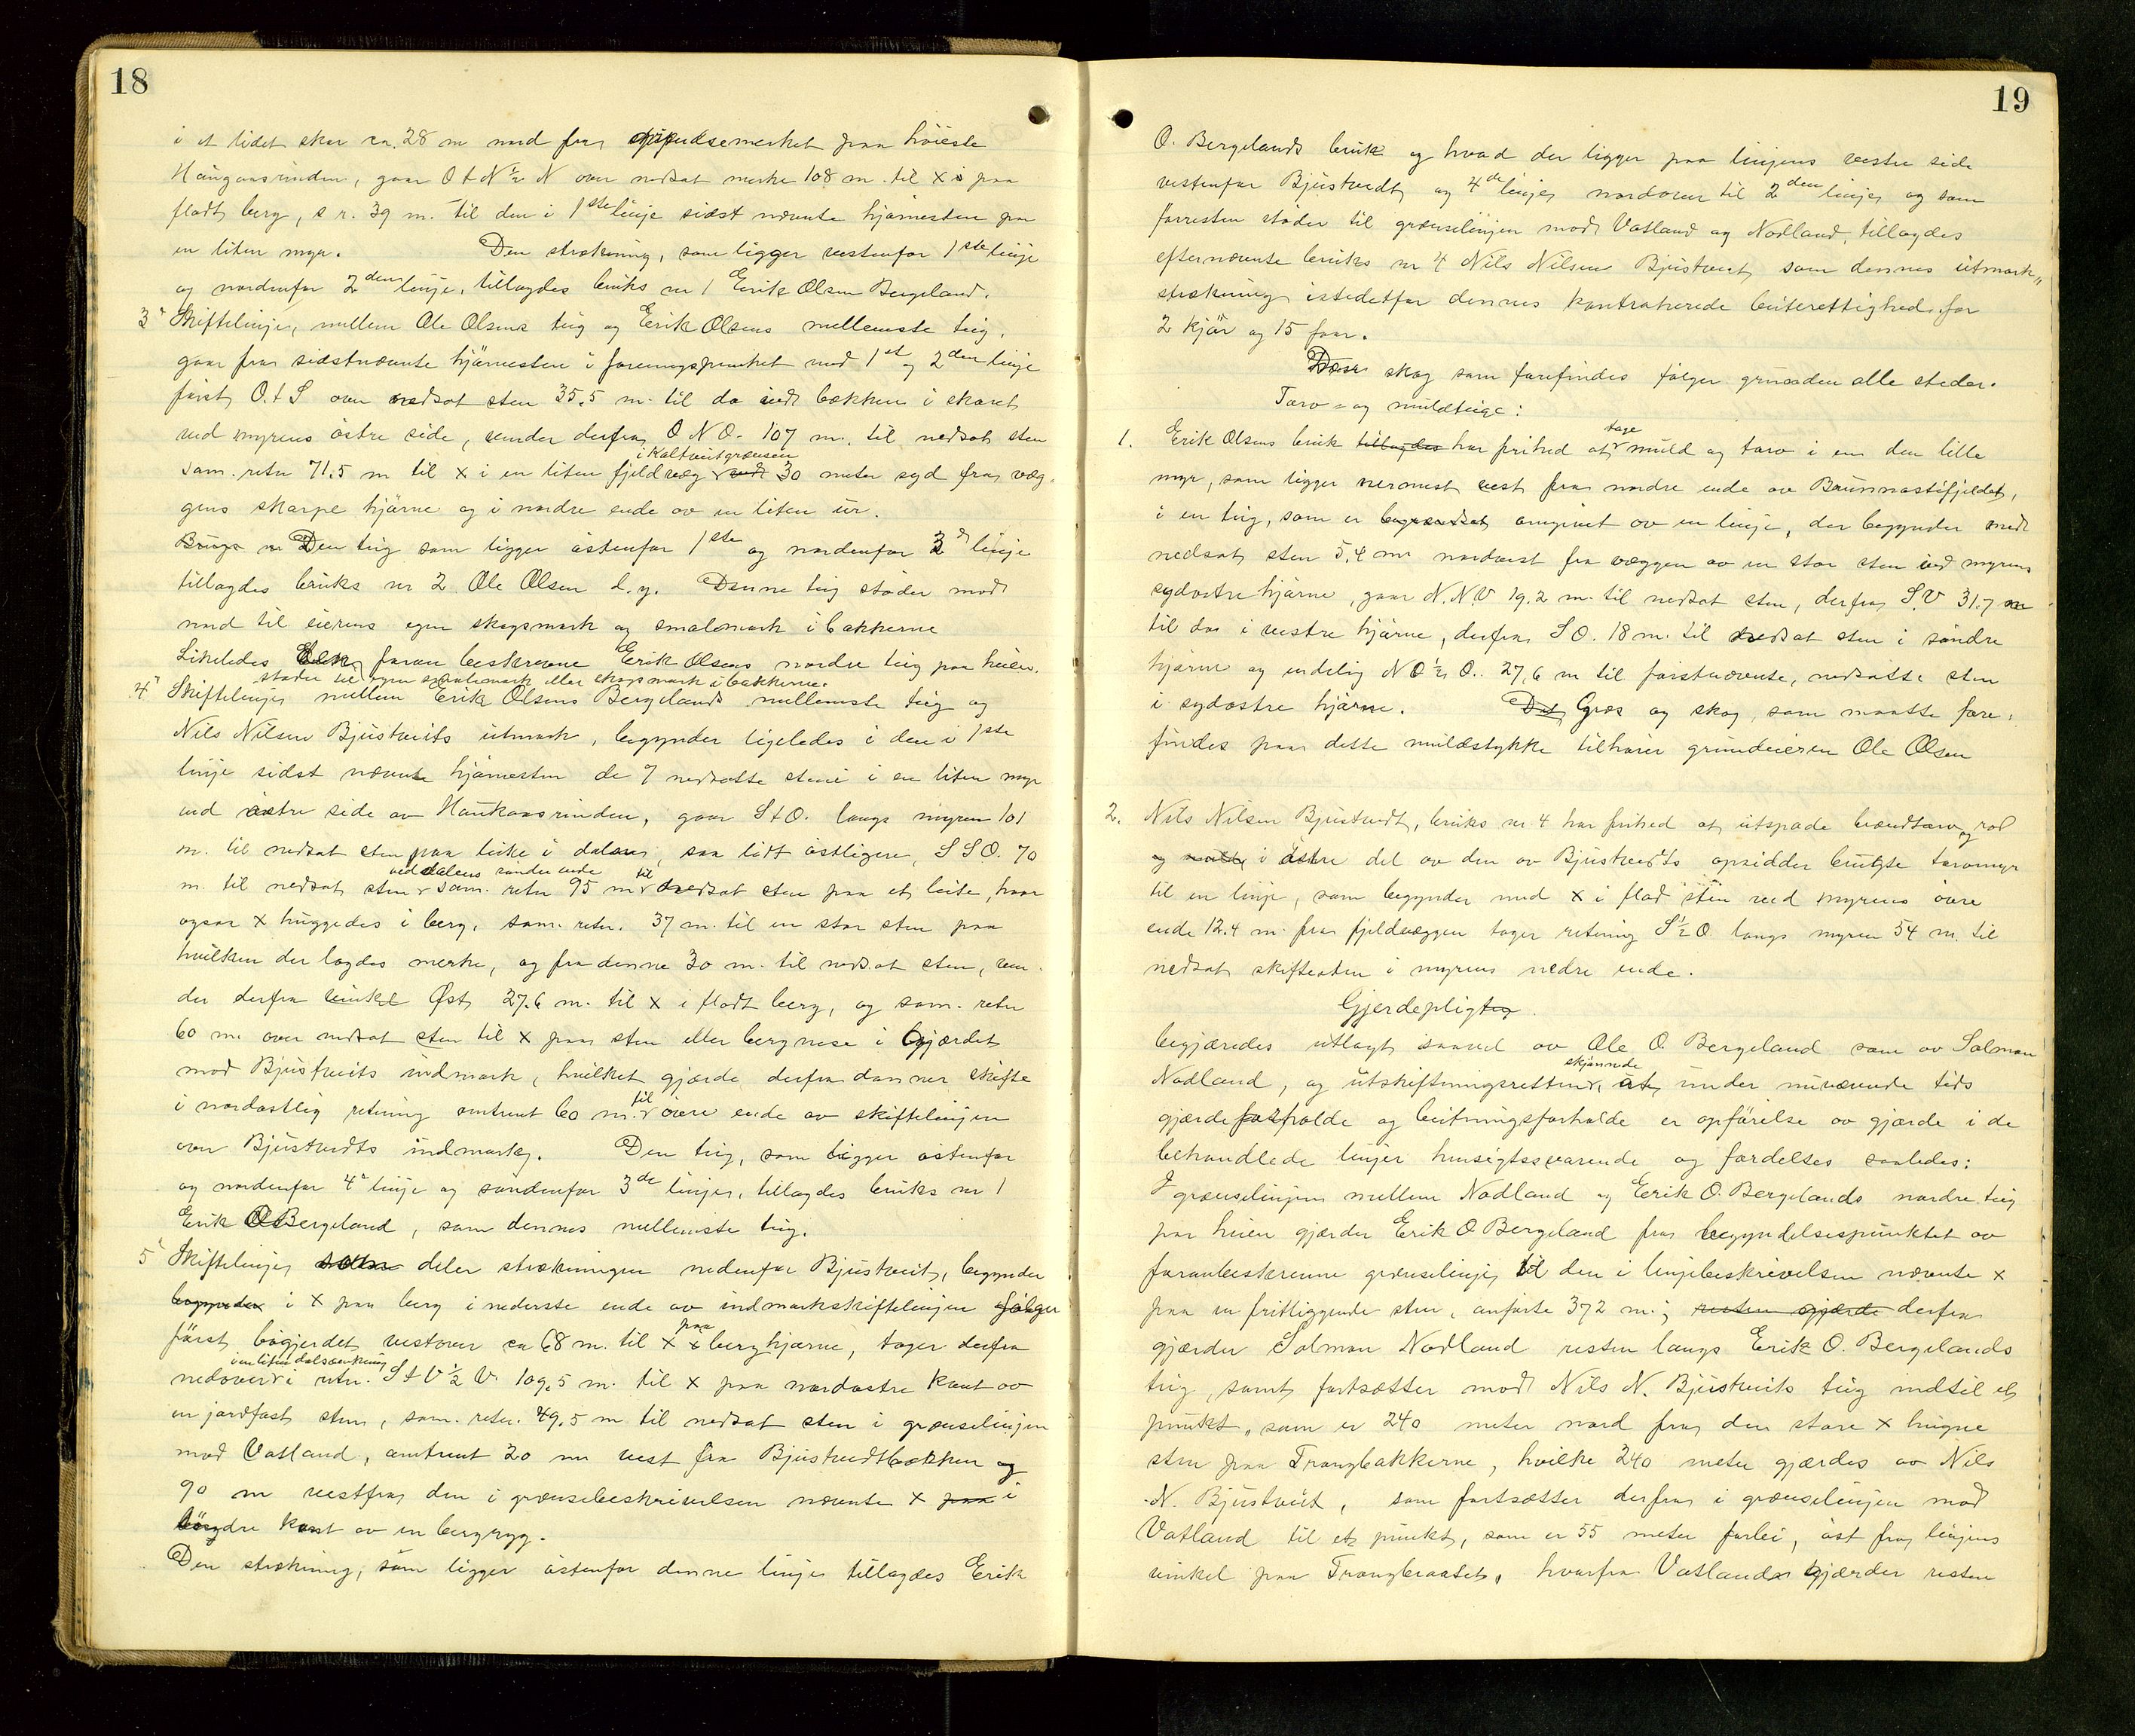 18
i et lidet skar ca. 28 m nord fra grændsemerket paa høieste
Haugaasrinden, gaar O t N ½ N over nedsat merke 108 m. til x paa
fladt berg, s r. 39 m. til den i 1ste linje sidst nævnte hjørnesten paa
en liten myr. Den strækning, som ligger vestenfor 1ste linje
og nordenfor 2den linje, tillagdes bruks nr 1 Erik Olsen Bergeland.
3. Skiftelinje, mellem Ole Olsens teig og Erik Olsens mellemste teig,
gaar fra sidstnævnte hjørnesten i foreningspunktet med 1ste og 2den linje
først O. t S over nedsat sten 35,5 m. til do ved bækken i skaret
ved myrens östre side, vender derfra O N O. 107 m. til nedsat sten
i Kaltveitgrænsen
sam. retn 71.5 m til x i en liten fjeldvæg 30 meter syd fra væg-
gens skarpe hjørne og i nordre ende av en liten ur.
Den teig som ligger østenfor 1ste og nordenfor 3d linje
tillagdes bruks nr 2 Ole Olsen d.y. Denne teig støder mod
nord til eierens egen skogsmark og smalemark i bakkerne
Likeledes foran beskrevne Erik Olsens nordre teig paa heien.
støder til egen smalemark eller skogsmark i bakkerne.
4. Skiftelinje mellem Erik Olsens Bergelands mellemste teig og
Nils Nilsen Bjustveits utmark, begynder ligeledes i den i 1ste
linje sidst nævnte hjørnesten de 7 nedsatte stene i en liten myr
ved østre side av Haukaasrinden, gaar S t O. langs myren 101
m. til nedsat sten paa leike i dalen, saa lidt østligere, S S O. 70
ved dalens søndre ende til
m. til nedsat sten sam. retn 95 m nedsat sten paa et leite, hvor
ogsaa x huggedes i berg, sam. retn. 37 m. til en stor sten paa
hvilken der lagdes merke, og fra denne 30 m. til nedsat sten, ven-
der derfra vinkel Øst 27.6 m. til x i fladt berg, og sam. retn
60 m. over nedsat sten til x paa sten eller bergnese i Gjærdet
mod Bjustveits indmark, hvilket gjærde derfra danner skifte
til
i nordøstlig retning omtrent 60 m. øvre ende av skiftelinjen
over Bjustvedts indmark. Den teig, som ligger østenfor
og nordenfor 4. linje og søndenfor 3de linje, tillagdes bruks nr 1
Erik O Bergeland, som dennes mellemste teig.
5. Skiftelinje deler strækningen nedenfor Bjustveit, begynder
i x paa berg i nederste ende av indmarkskiftelinjen følger
paa
först bøgjerdet vestover ca 68 m. til x berghjørne, tager derfra
i en liten dalsænkning
nedover i retn. S t V ½ V. 109,5 m. til x paa nordøstre kant av
en jordfast sten, sam. retn. 49,5 m til nedsat sten i grænselinjen
mod Vatland, omtrent 20 m vest fra Bjustvedtbækken og
90 m vestfra den i grænsebeskrivelsen nævnte x i
søndre kant av en bergryg.
Den strækning, som ligger østenfor denne linje tillagdes Erik
19
O. Bergelands bruk og hvad der ligger paa linjens vestre side
vestenfor Bjustvedt og 4de linje nordover til 2den linje og som
forresten støder til grænselinjen mod Vatland og Nodland, tillagdes
efternævnte bruks nr 4 Nils Nilsen Bjustveit som dennes utmark-
strækning istedetfor dennes kontraherede beiterettighed for
2 kjør og 15 faar.
skog som forefindes følger grunden alle steder.
Torv- og muldteige:
tage
1. Erik Olsens bruk tillagdes har frihed at muld og torv i en den lille
myr, som ligger nærmest vest fra nordre ende av Brunnastifjeldet,
i en teig, som er begrændset omgivet av en linje, der begynder med
nedsat sten 5,4 m nordvest fra væggen av en stor sten ved myrens
sydøstre hjørne, gaar N.N.V 19.2 m. til nedsat sten, derfra S.V 31.7 m
til do i vestre hjørne, derfra S O. 18 m. til nedsat sten i søndre
hjørne og endelig N O ½ O. 27,6 m til førstnævnte, nedsatte sten
i sydøstre hjørne. Det Græs og skog, som maatte fore-
findes paa dette muldstykke tilhører grundeieren Ole Olsen
2. Nils Nilsen Bjustvedt, bruks nr 4 har frihed at utspade brændtorv og rod
og muld i østre del av den av Bjustvedts opsidder brugte torvmyr
til en linje, som begynder med x i flad sten ved myrens øvre
ende 12.4 m. fra fjeldvæggen tager retning S ½ O. langs myren 54 m. til
nedsat skiftesten i myrens nedre ende.
Gjerdepligt
begjæredes utlagt saavel av Ole O. Bergeland som av Salmon
skjønnede
Nodland, og utskiftningsretten at under nuværende tids
gjærdeforholde og beitningsforholde er opførelse av gjærde i de
behandlede linjer hensigtssvarende og fordeltes saaledes:
I grænselinjen mellem Nodland og Erik O. Bergelands nordre teig
paa heien gjærder Erik O Bergeland fra begyndelsespunktet av
foranbeskrevne grænselinje til den i linjebeskrivelsen nævnte x
paa en fritliggende sten, anførte 372 m.; resten gjærde derfra
gjærder Salmon Nodland resten langs Erik O. Bergelands
teig samt fortsætter mod Nils N. Bjustveits teig indtil et
punkt, som er 240 meter nord fra den store x hugne
sten paa Trangbakkerne, hvilke 240 meter gjærdes av Nils
N. Bjustveit, som fortsætter derfra i grænselinjen mod
Vatland til et punkt, som er 55 meter forbi, øst fra linjens
vinkel paa Trangbraatet, hvorfra Vatland gjærder resten